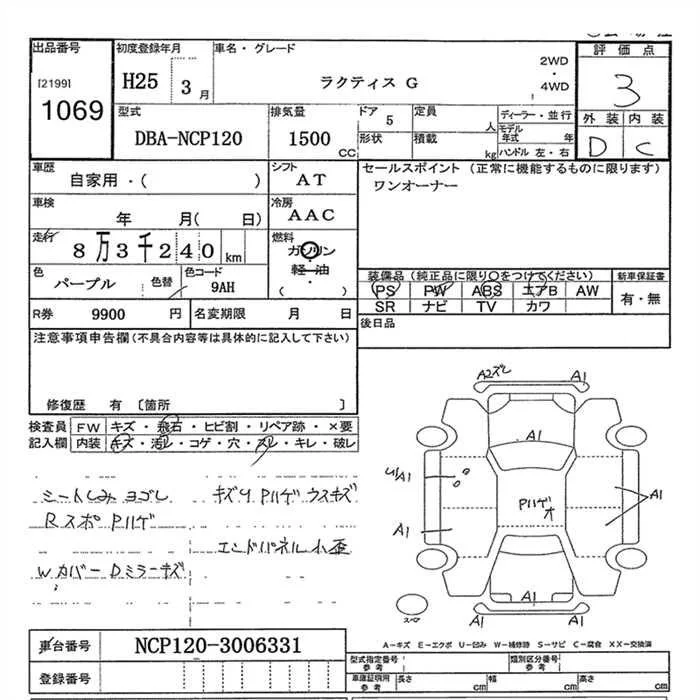 出品番号 初度登録年月 車名・グレード 評価点
[2199] H25 3月 ラクティス G 2WD・4WD 3
1069
型式 排気量 ドア 定員 ディーラー・並行 外装 内装
DBA-NCP120 1500CC 5 人 モデル年式 年 D C
形状 積載 kg ハンドル 左・右
車歴 シフト セールスポイント (正常に機能するものに限ります)
自家用・( ) AT ワンオーナー
車検 冷房
年 月( 日) AAC
走行 燃料
8万3千240km ガソリン・軽・油
( )
色 色替 色コード 装備品(純正品に限り○をつけてください) 新車保証書
パープル 9AH PS PW ABS エアB AW 有・無
SR ナビ TV カワ
R券 9900 円 名変期限 月 日 後日品
注意事項申告欄(不具合内容等は具体的に記入して下さい)
修復歴 有 〔箇所 〕
検査員 FW キズ・飛石・ヒビ割・リペア跡・×要
記入欄 内装 キズ・汚レ・コゲ・穴・スレ・キレ・破レ
シートしみ ヨゴレ キズ Pハゲ ウスキズ
Rスポ Pハゲ
エンドパネル小歪
Wカバー Dミラーキズ
A2ズレ A1
A1
U1/A1
Pハゲオ A1
A1
A1
A1 A1
スペア
車台番号 NCP120-3006331
A-キズ E-エクボ U-凹み W-補修跡 S-サビ C-腐食 XX-交換済
登録番号
型式指定番号 参考 類別区分番号 参考
車庫証明用 参考 長さ cm 幅 cm 高さ cm